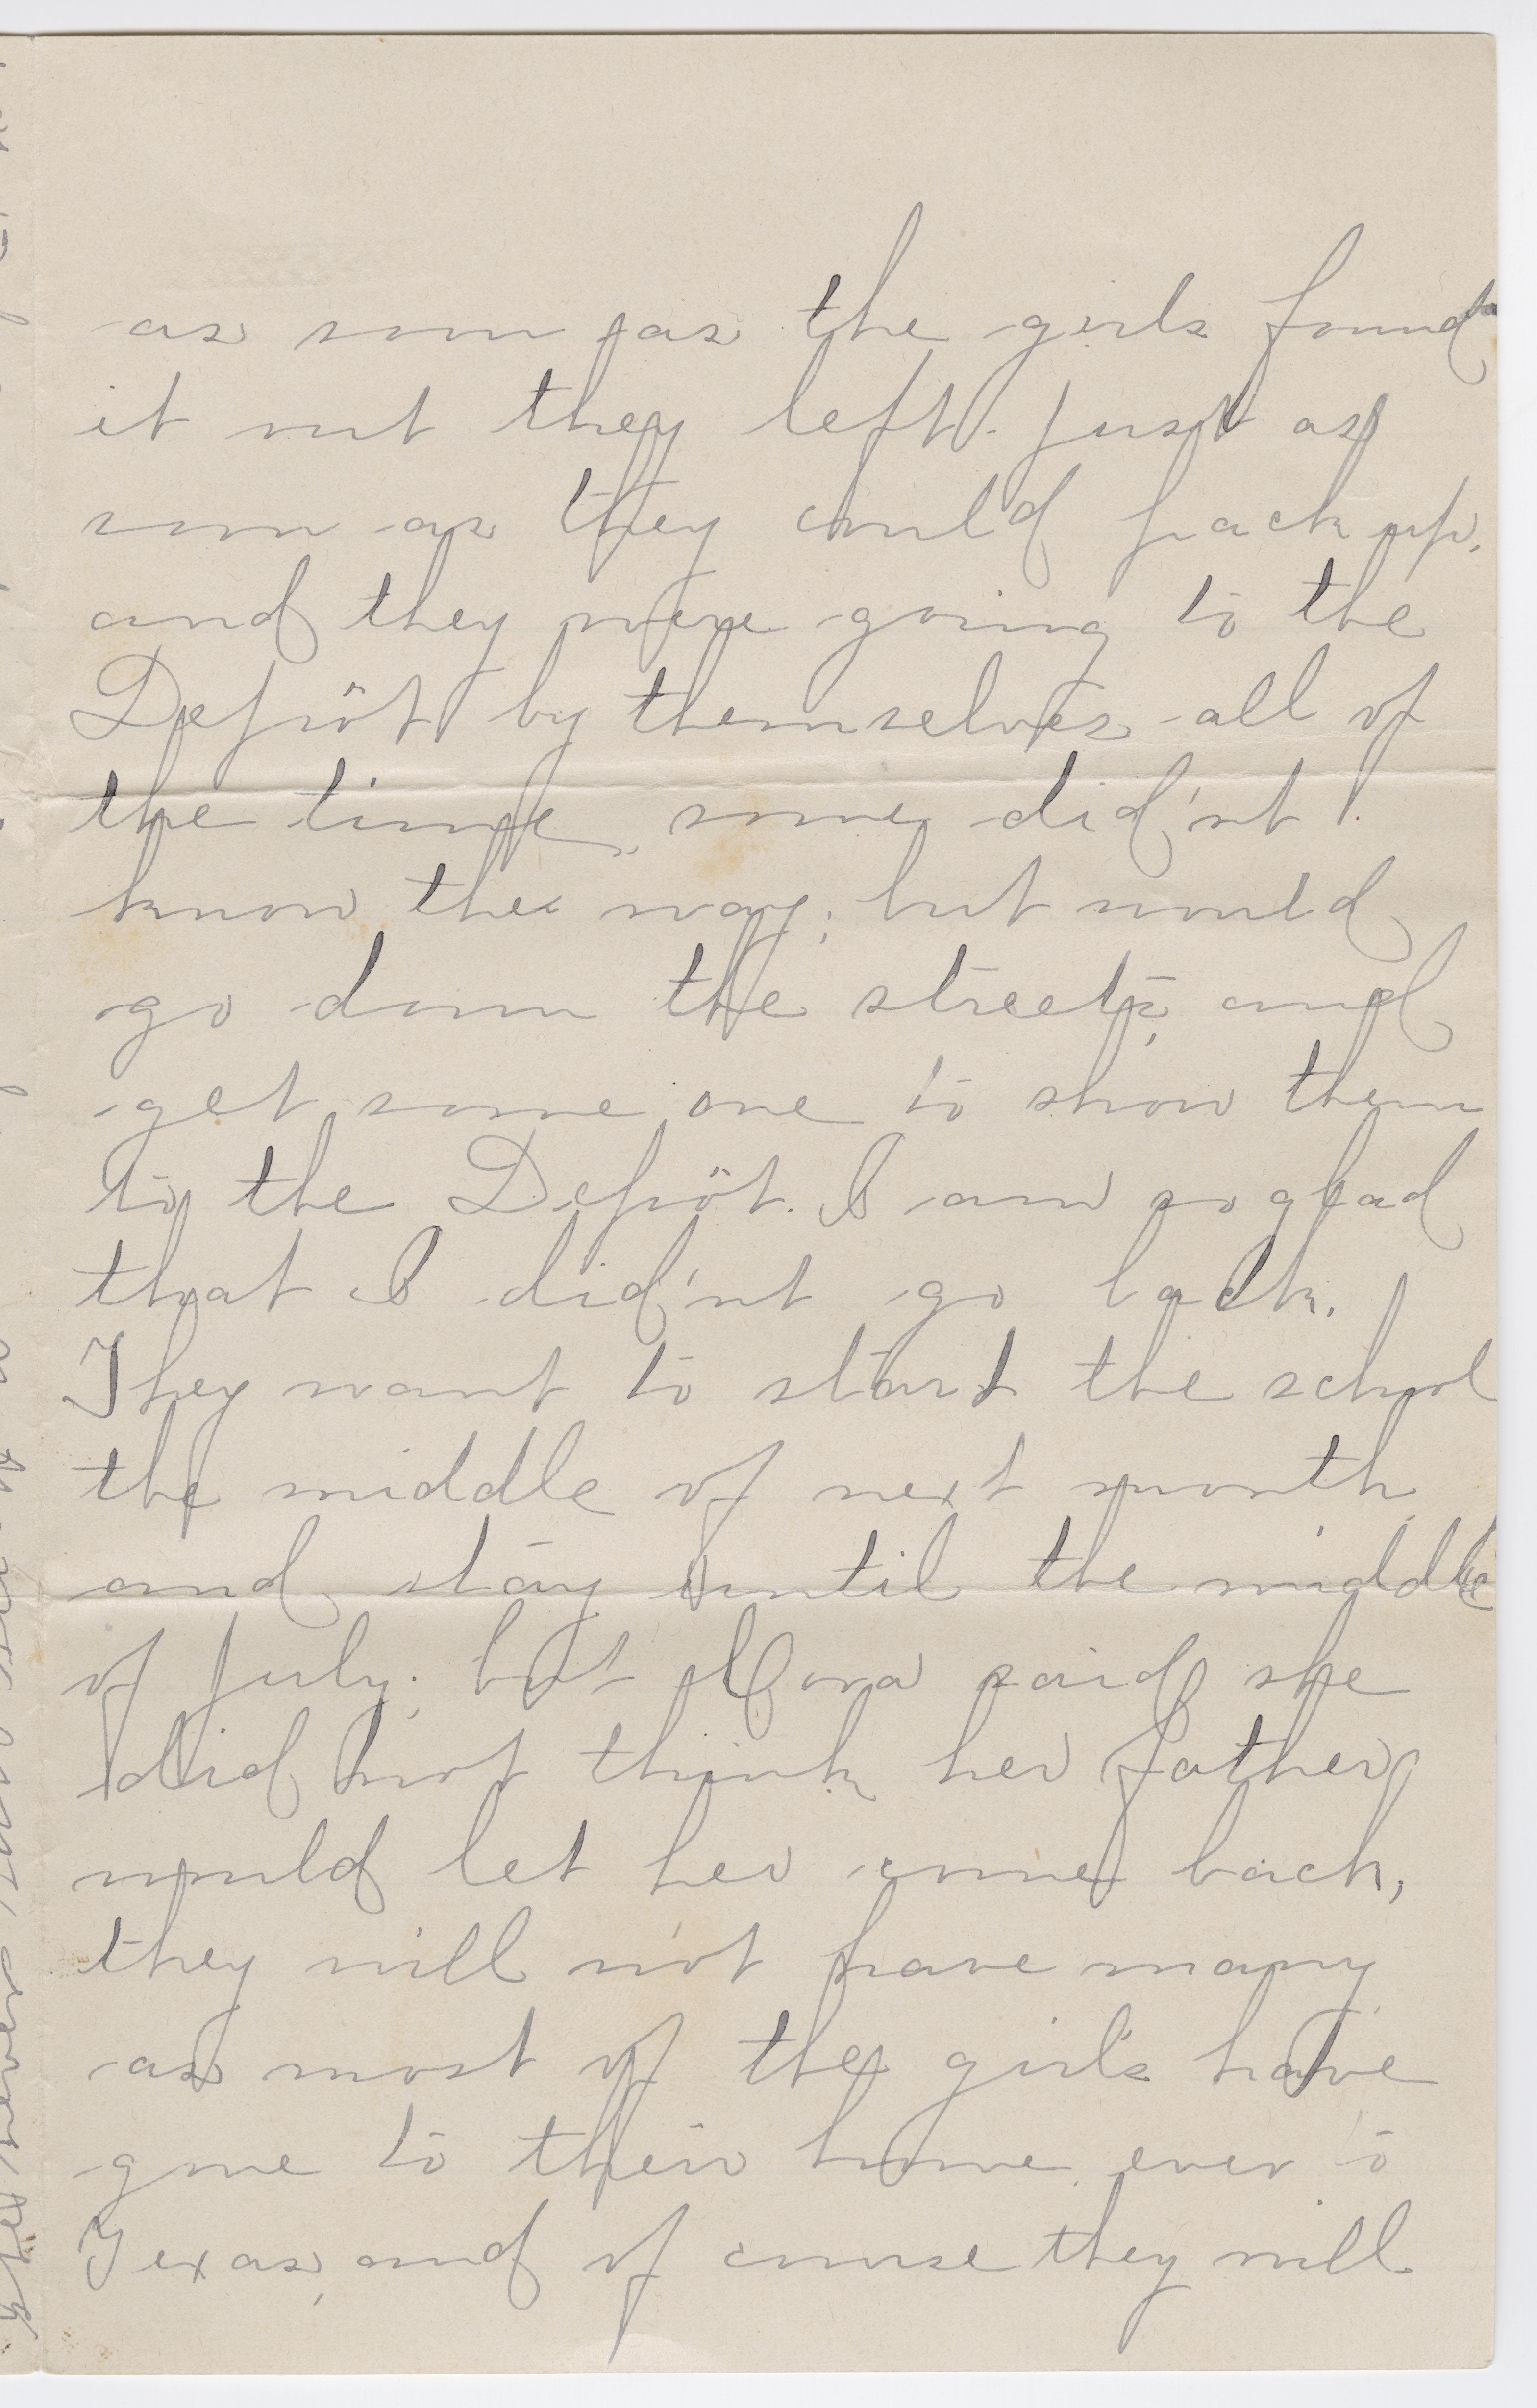 as soon as the girls found
it out they left. just as
soon as they could pack up.
and they were going to the
Depöt by themselves all of
the time, some did'nt
know the way; but would
go down the streets, and
get some one to show them
to the Depöt. I am so glad
that I did'nt go back.
They want to start the school
the middle of next month,
and stay until the middle
of July; but Cora said she
did not think her father
would let her come back,
they will not have many
as most of the girls have
gone to their home even to
Texas, and of course they will